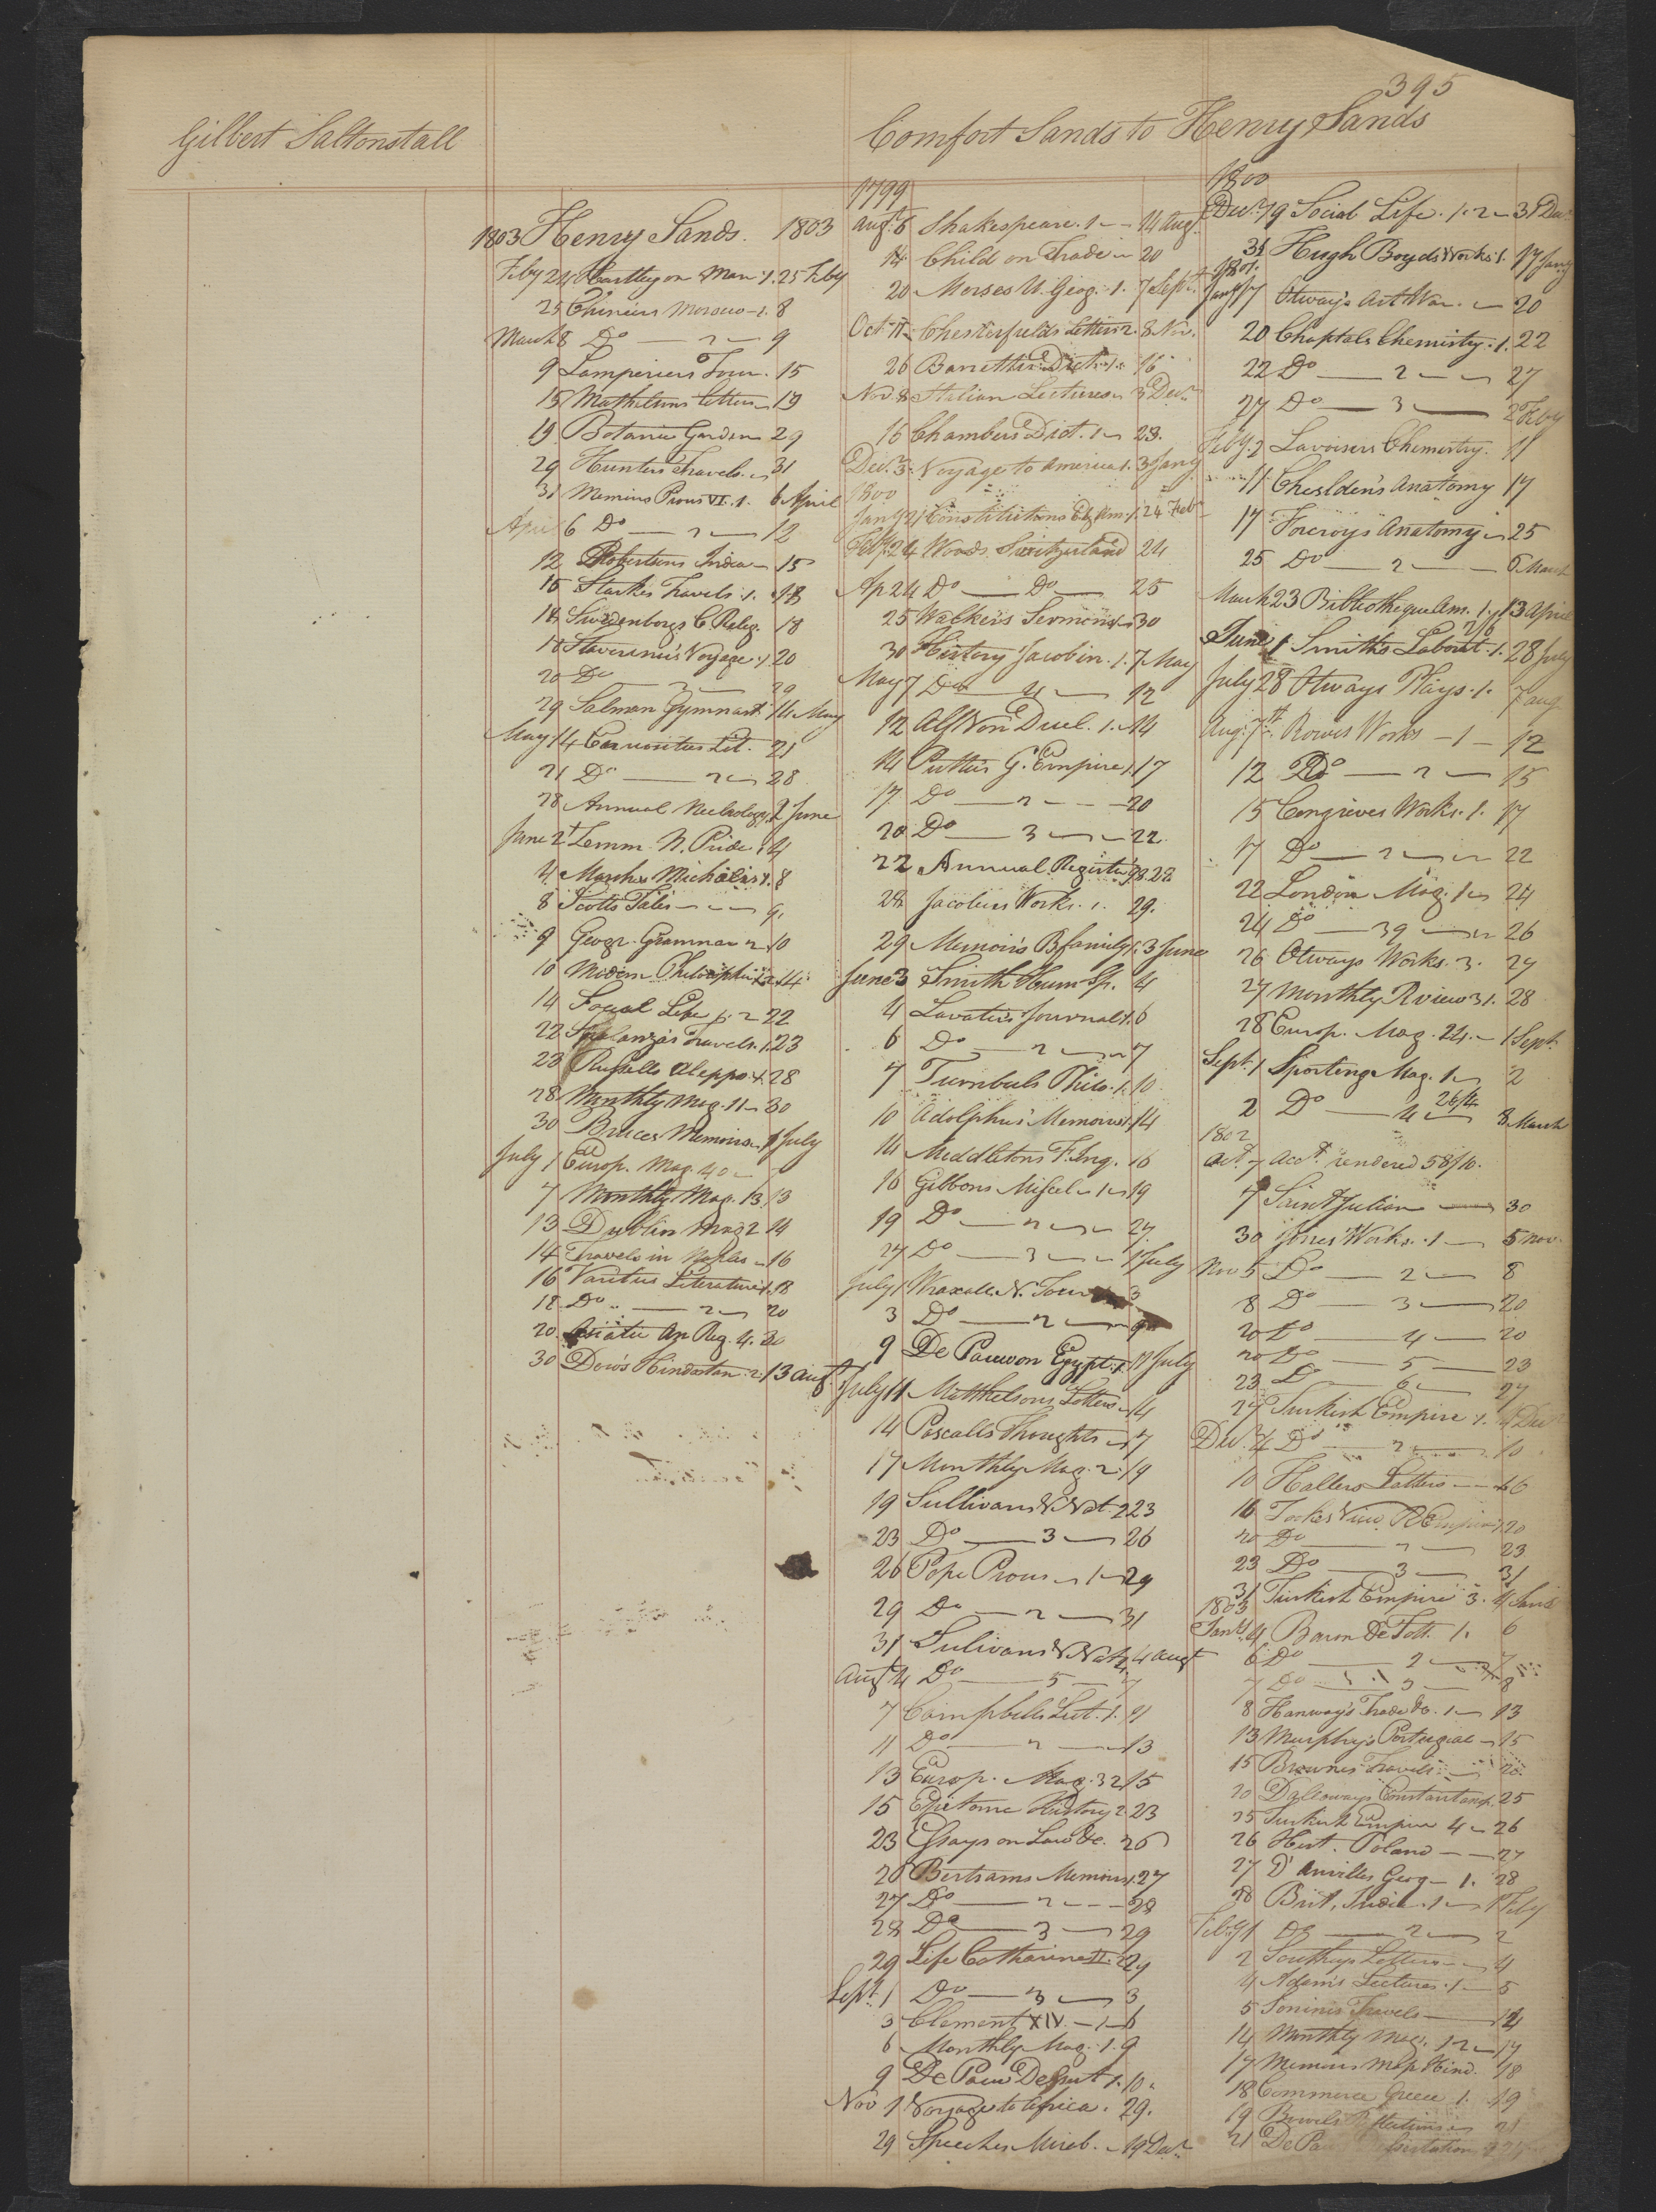 395
Gilbert Saltonstall
Comfort Sands to Henry Sands
1803 Henry Sands. 1803
Feby 24 Hartley on Man. 1. 25 Feby
25 Chiniers Morocco 1. 8
March 8 Do — 2 — 9
9 Lamperiers Tour. 15
15 Mathisons letters 19
19 Botanic Garden 29
29 Hunters Travels 31
31 Memins Pious VI. 1. 6 April
April 6 Do — 2 — 12
12 Robertsons India — 15
15 Starkes Travels. 1. 18
18 Swedenborgs C. Relig. 18
18 Stavorinus Voyage. 1. 20
20 Do — 2 — 29
29 Salzman Gymnast. 14 May
May 14 Curiosities Lit. 21
21 Do — 2 — 28
28 Annual Necrology 2 June
June 2 Zemm. N. Pride. 4
4 Marshes Michalis 1. 8
8 Scotts Tales — 9.
9 Geogr. Grammar 10
10 Modern Philosophers 2. 14.
14 Social Life 1. 2 22
22 Spalanza's Travels. 1. 23
23 Russells Aleppo 1. 28
28 Monthly Mag. 11 — 30
30 Bruces Memoirs 1 July
July 1 Europ. Mag. 40 —
7 Monthly Mag. 13. 13
13 Dublin Mag 2 14
14 Travels in Naples — 16
16 Varities Literature 1. 18
18 Do — 2 — 20
20 Asiatic An Reg. 4. 30
30 Dow's Hindostan 2. 13 Augt.
1799
Augt. 6 Shakespeare. 1 — 14 Aug.
14 Child on Trade — 20
20 Morses U. Geog. 1. 7 Sept.
Oct. 11 Chesterfields Letters 2. 8 Nov.
26 Barretties Dict. 1. 16
Nov. 8 Italian Lectures 3 Decr.
16 Chambers Dict. 1 — 23.
Dec. 3. Voyage to America 1. 3 Jany
1800
Jany 21 Constitutions Am. 1. 24 Feb
Feby. 24 Woods Switzerland 24
Ap 24 Do — Do — 25
25 Walkers Sermons 30
30 History Jacobin. 1. 7 May
May 7 Do — 4 — 12
12 Alf Von Duel. 1. 14
14 Putters G. Empire 1. 17
17 Do — 2 — 20
20 Do — 3 — 22
22 Annual Register 98. 28
28 Jacobins Works. 1. 29.
29 Memoirs B family 1. 3 June
June 3 Smith Hum. Sp. 4
4 Lavaters Journal 1. 6
6 Do — 2 — 7
7 Turnbuls Philo. 1. 10
10 Adolphus Memoirs 1. 14
14 Middletons F. Inq. 16
16 Gibbons Miscel — 1 — 19
19 Do — 2 — 27
27 Do — 3 — 1 July
July 1 Wraxalls N. Tour 3
3 Do — 2 — 9
9 De Pauw on Egypt. 1. 11 July
July 11 Mitthelsons Letters — 14
14 Pascalls Thoughts — 17
17 Monthly Mag. 2. 19
19 Sullivans V. Nat. 2 23
23 Do — 3 — 26
26 Pope Prous — 1 — 29
29 Do — 2 — 31
31 Sulivans V. Nat 4. 4 Augt
Augt 4 Do — 5 — 7
7 Campbells Lect. 1. 11
11 Do — 2 — 13
13 Europ. Mag. 32 15
15 Epitome History 2. 23
23 Essays on Law &c. 26
26 Bertrams Memoirs 1. 27
27 Do — 2 — 28
28 Do — 3 — 29
29 Life Catharine II. 29
Sept. 1 Do — 3 — 3
3 Clement XIV. — 1 — 6
6 Monthly Mag. 1. 9
9 De Pauw Dessert 1. 10.
Nov 1 Voyage to Africa. 29.
29 Speeches Mirab. — 19 Decr
1800
Decr. 19 Social Life. 1. 2 — 31 Decr
31 Hugh Boyds Works 1. 17 Jany
1801.
Jany 17 Otway's Art War. — 20
20 Chaptals Chemistry. 1. 22
22 Do — 2 — 27
27 Do — 3 — 2 Feby
Feby. 2 Lavoisers Chemistry. 11
11 Cheslden's Anatomy 17
17 Forcroys Anatomy — 25
25 Do — 2 — 6 March
March 23 Bibliotheque Am. 1. 13 April
June 1 Smiths Laborat. 1. 28 July
July 28 Otways Plays. 1. 7 Aug
Aug. 7th. Rowes Works — 1 — 12
12 Do — 2 — 15
15 Congreves Works. 1. 17
17 Do — 2 — 22
22 London Mag. 1 — 24
24 Do — 39 — 26
26 Otways Works. 3. 27
27 Monthly Rview 31. 28
28 Europ. Mag. 24. — 1 Sept.
Sept. 1 Sporting Mag. 1 — 2
2 Do — 4 — 26/4 8 March
1802
Oct. 7 Acct. rendered 58/10.
7 Saint Julian — 30
30 Jones Works. 1 — 5 Nov.
Nov 5 Do — 2 — 8
8 Do — 3 — 20
20 Do — 4 — 20
20 Do — 5 — 23
23 D — 6 — 27
27 Turkish Empire 1. 4 Decr
Dec. 4 Do — 2 — 10
10 Hallers Letters — 16
16 Tookes View R Empire 1. 20
20 Do — 2 — 23
23 Do — 3 — 31
31 Turkish Empire 3. 4 Jany
1803
Jany. 4 Baron De Tott. 1. 6
6 Do — 2 — 7
7 Do — 3 — 8
8 Hanway's Trade &c. 1 — 13
13 Murphy's Portugal — 15
15 Brownes Travels — 20
20 Dallaways Constantanop. 25
25 Turkish Empire 4 — 26
26 Hist. Poland — 27
27 D'Anvilles Geog — 1. 28
28 Brit, India. 1 — 1 Feby
Feby 1 Do — 2 — 2
2 Southeys Letters — 4
4 Adams Lectures. 1 — 5
5 Soninis Travels — 14
14 Monthly Mag. 12 — 17
17 Memoirs Map Hind. 18
18 Commerce Greece 1. 19
19 Reflections 21
21 De Pauw